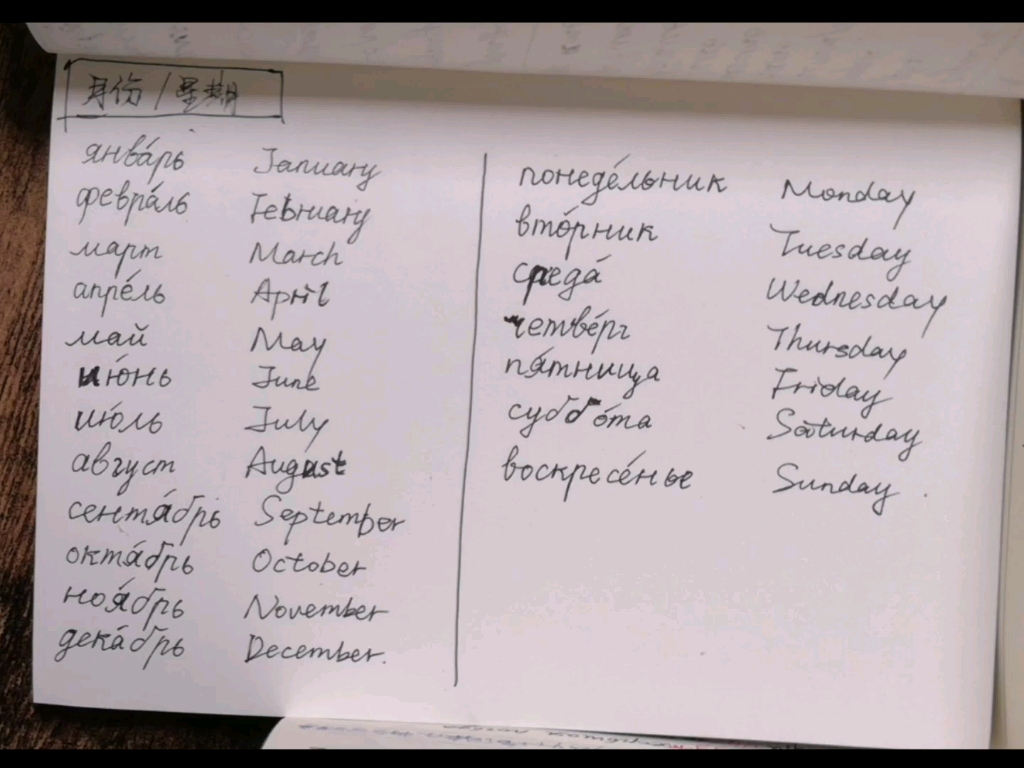 月份/星期
янва́рь January
февра́ль February
март March
апре́ль April
май May
ию́нь June
ию́ль July
август August
сентя́брь September
октя́брь October
ноя́брь November
дека́брь December.
понеде́льник Monday
вто́рник Tuesday
среда́ Wednesday
четве́рг Thursday
пя́тница Friday
суббо́та Saturday
воскресе́нье Sunday.